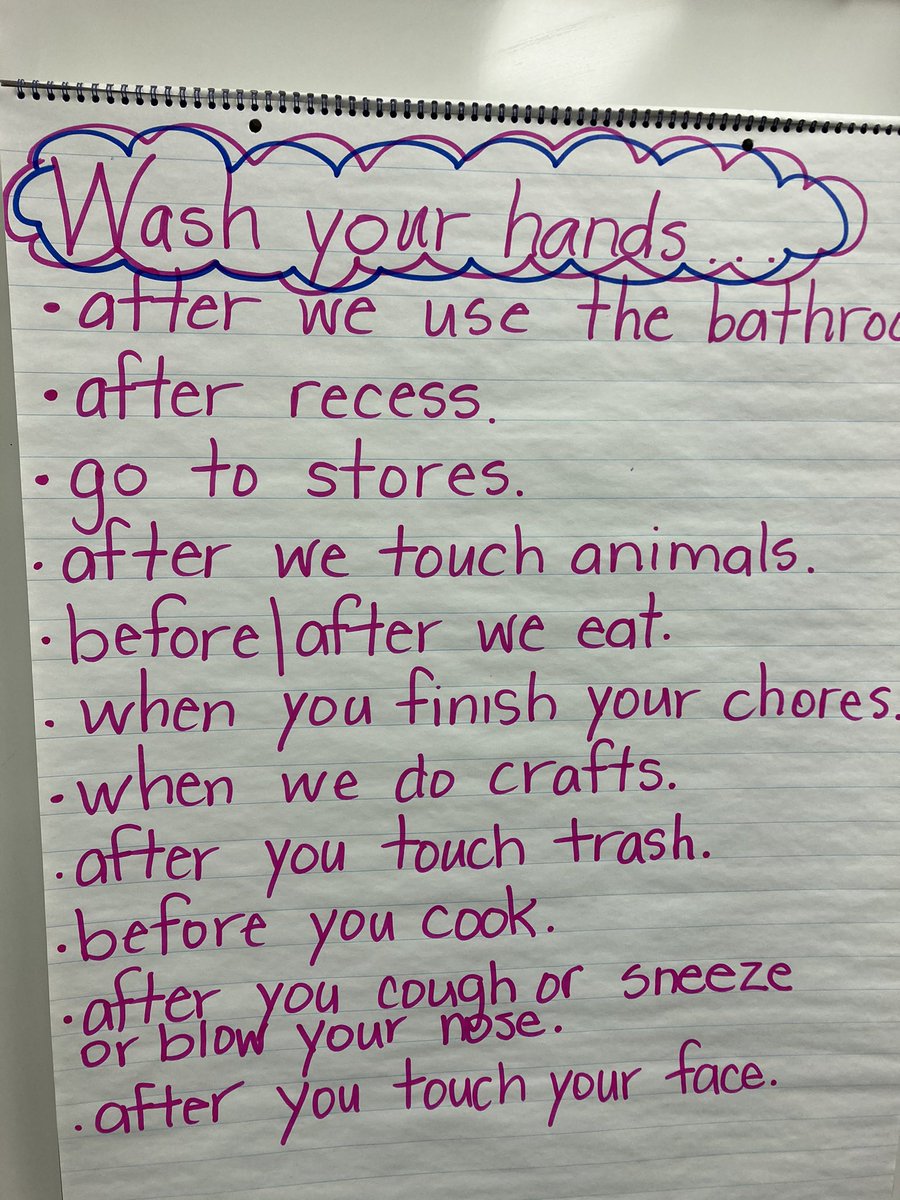 Wash your hands...
• after we use the bathroo
• after recess.
• go to stores.
• after we touch animals.
• before/after we eat.
• when you finish your chores.
• when we do crafts.
• after you touch trash.
• before you cook.
• after you cough or sneeze
or blow your nose.
• after you touch your face.